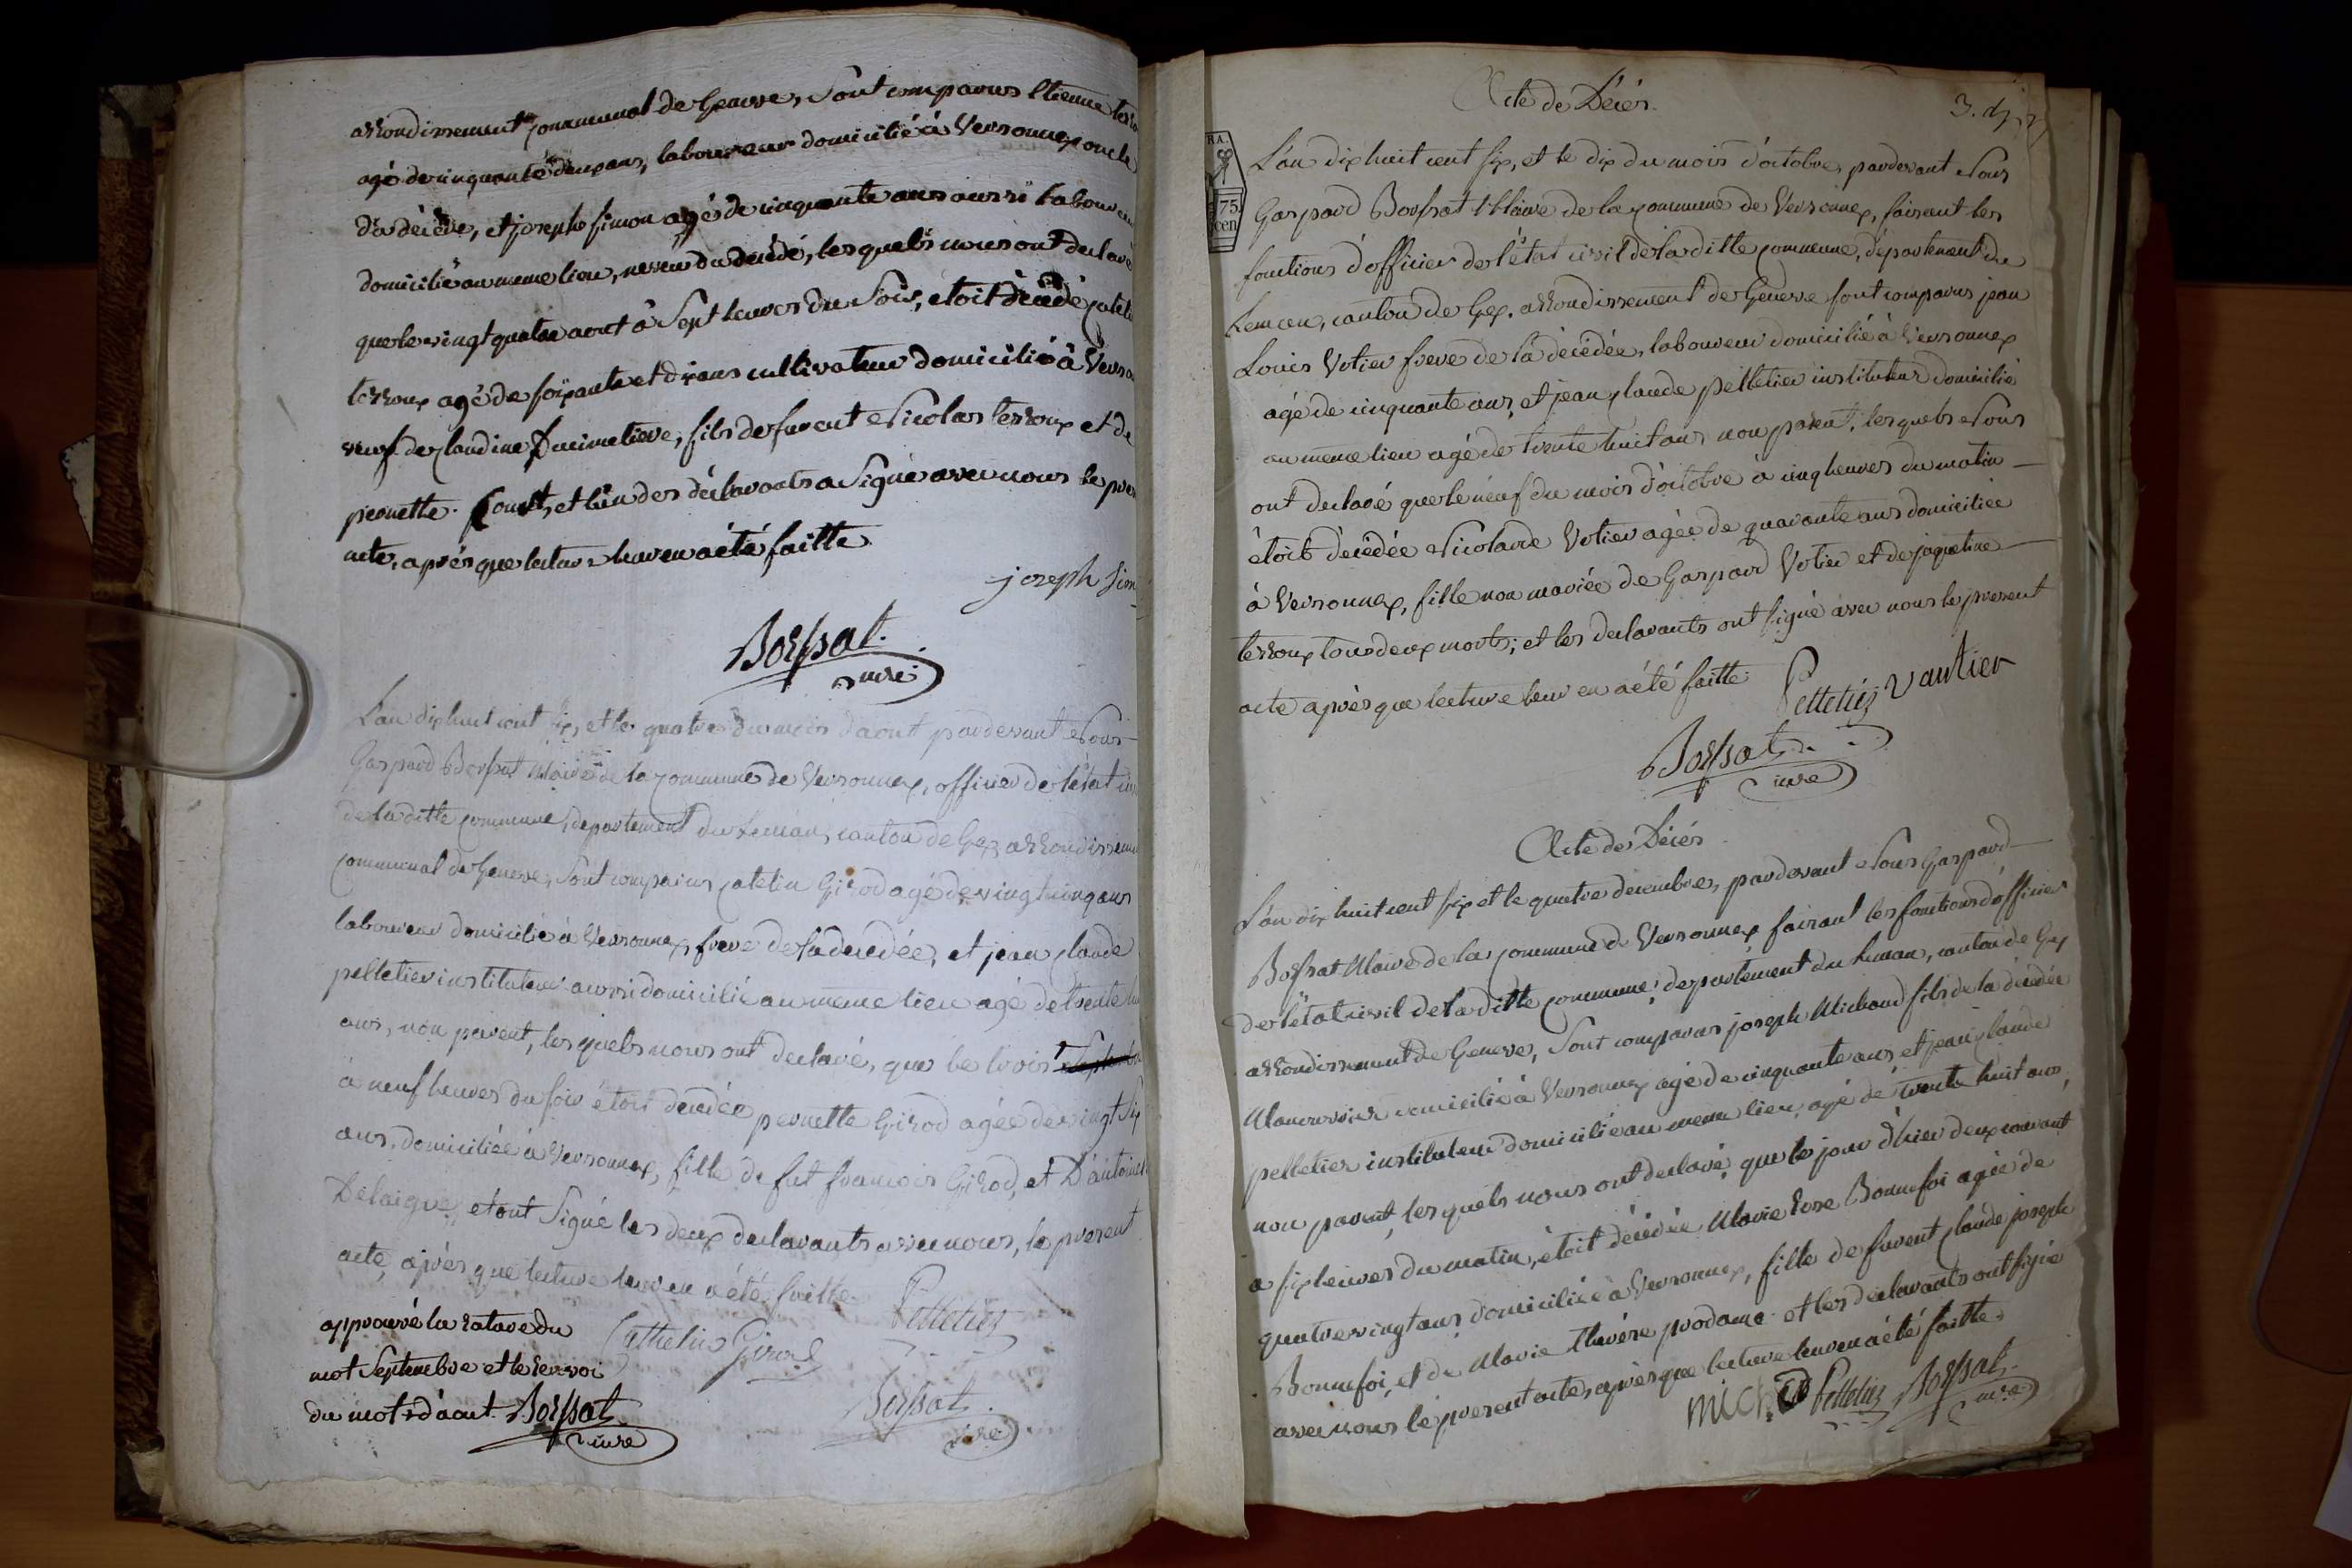 arrondissement communal de Geneve, Sont comparus Etienne
agé de cinquante deux ans, laboureur domicilié à Versonnex oncle
du décédé, et joseph simon agé de cinquante ans aussi laboureu
domicilié au meme lieu, neveu du décédé, lesquels nous ont declaré
que le vingt quatre aout à Sept heures du Soir, étoit décédé
terroux agé de soixante et dix ans cultivateur domicilié à Verso
veuf de claudine Ducimetiere, fils de furent Nicolas terroux et de
pernette et l'un des déclarants a Signé avec nous le pres
acte, après que lecture leur en a été faitte
joseph Sim
Borssat
mre
L'an dix huit cent six, et le quatre du mois d'aout pardevant Nous
Gaspard Borssat Maire de la commune de Versonnex, officier de l'état
de laditte commune, departement du Leman, canton de Gex arrondisseme
communal de Geneve, Sont comparus catelin Girod agé de vingt cinq ans
laboureur domicilié à Versonnex frere de la decedée, et jean claude
pelletier instituteur aussi domicilié au même lieu agé de trente
ans, non parent, lesquels nous ont declaré, que le trois
à neuf heures du soir étoit decedée pernette Girod agée de vingt six
ans, domiciliée à Versonnex, fille de fut francois Girod, et D'antoinet
Delaigue, et ont Signé les deux declarants avec nous, le present
acte, après que lecture leur en a été faitte.
Pelletier
Cathelin Girod
Borssat
mre
approuvé la rature du
mot Septembre et le renvoi
du mot d'aout. Borssat
mre
3.
Acte de Décés
R.A.
75
cen
L'an dix huit cent six, et le dix du mois d'octobre, pardevant Nous
Gaspard Borssat Maire de la commune de Versonnex, faisant les
fonctions d'officier de l'état civil de la ditte commune, departement du
Leman, canton de Gex, arrondissement de Geneve sont comparus jean
Louis Votier frere de la décédée, laboureur domicilié à Versonnex
agé de cinquante ans, et jean claude pelletier instituteur domicilié
au meme lieu agé de trente huit ans non parent, lesquels Nous
ont declaré que le neuf du mois d'octobre à cinq heures du matin
étoit décédée Nicolarde Votier agée de quarante ans domiciliée
à Versonnex, fille non mariée de Gaspard Votier et de jaqueline
terroux tous deux morts; et les declarants ont signé avec nous le present
acte après que lecture leur en a été faitte
Pelletier Vautier
Borssat
mre
Acte de Décés
L'an dix huit cent six et le quatre decembre, pardevant Nous Gaspard
Borssat Maire de la commune de Versonnex faisant les fonctions d'officier
de l'état civil de la ditte commune, departement du leman, canton de Gex
arrondissement de Geneve, Sont comparus joseph Michaud fils de la décédée
domicilié à Versonnex agé de cinquante ans, et jean claude
pelletier instituteur domicilié au meme lieu, agé de trente huit ans,
non parent, lesquels nous ont declaré, que le jour d'hier deux courant
a six heures du matin, étoit décédée Marie Rose Bonnefoi agée de
quatre vingt ans domiciliée à Versonnex, fille de furent claude joseph
Bonnefoi, et de Marie therése prodame et les declarants ont signé
avec nous le present acte, après que lecture leur en a été faitte.
Pelletier Borssat
mre